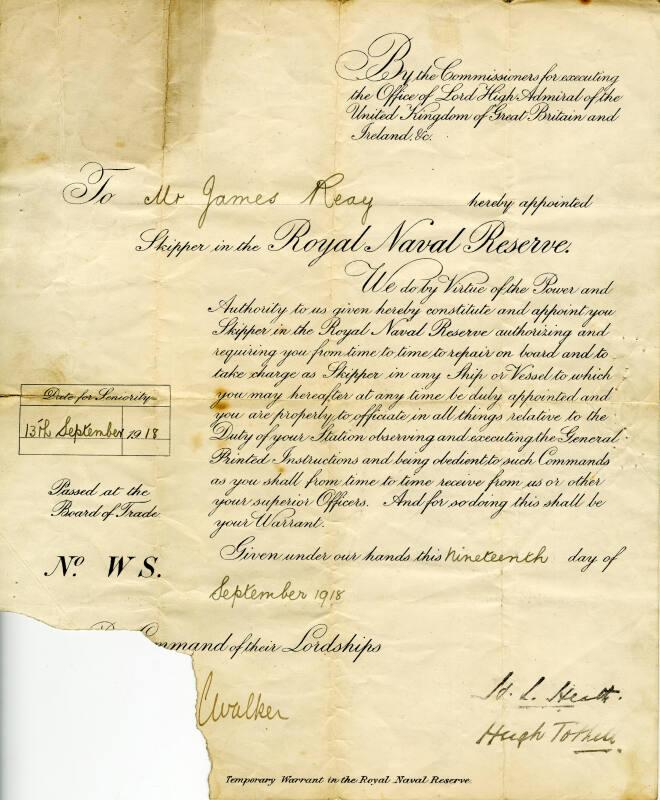 By the Commissioners for executing
the Office of Lord High Admiral of the
United Kingdom of Great Britain and
Ireland, &c.
To Mr James Reay hereby appointed
Skipper in the Royal Naval Reserve.
We do by Virtue of the Power and
Authority to us given hereby constitute and appoint you
Skipper in the Royal Naval Reserve authorizing and
requiring you from time to time to repair on board and to
take charge as Skipper in any Ship or Vessel to which
you may hereafter at any time be duly appointed and
you are properly to officiate in all things relative to the
Duty of your Station observing and executing the General
Printed Instructions and being obedient to such Commands
as you shall from time to time receive from us or other
your superior Officers. And for so doing this shall be
your Warrant.
Date for Seniority
13th September 1918
Passed at the
Board of Trade
No. W S.
Given under our hands this nineteenth day of
September 1918
Command of their Lordships
Walker
H. L. Heath.
Hugh
Temporary Warrant in the Royal Naval Reserve.